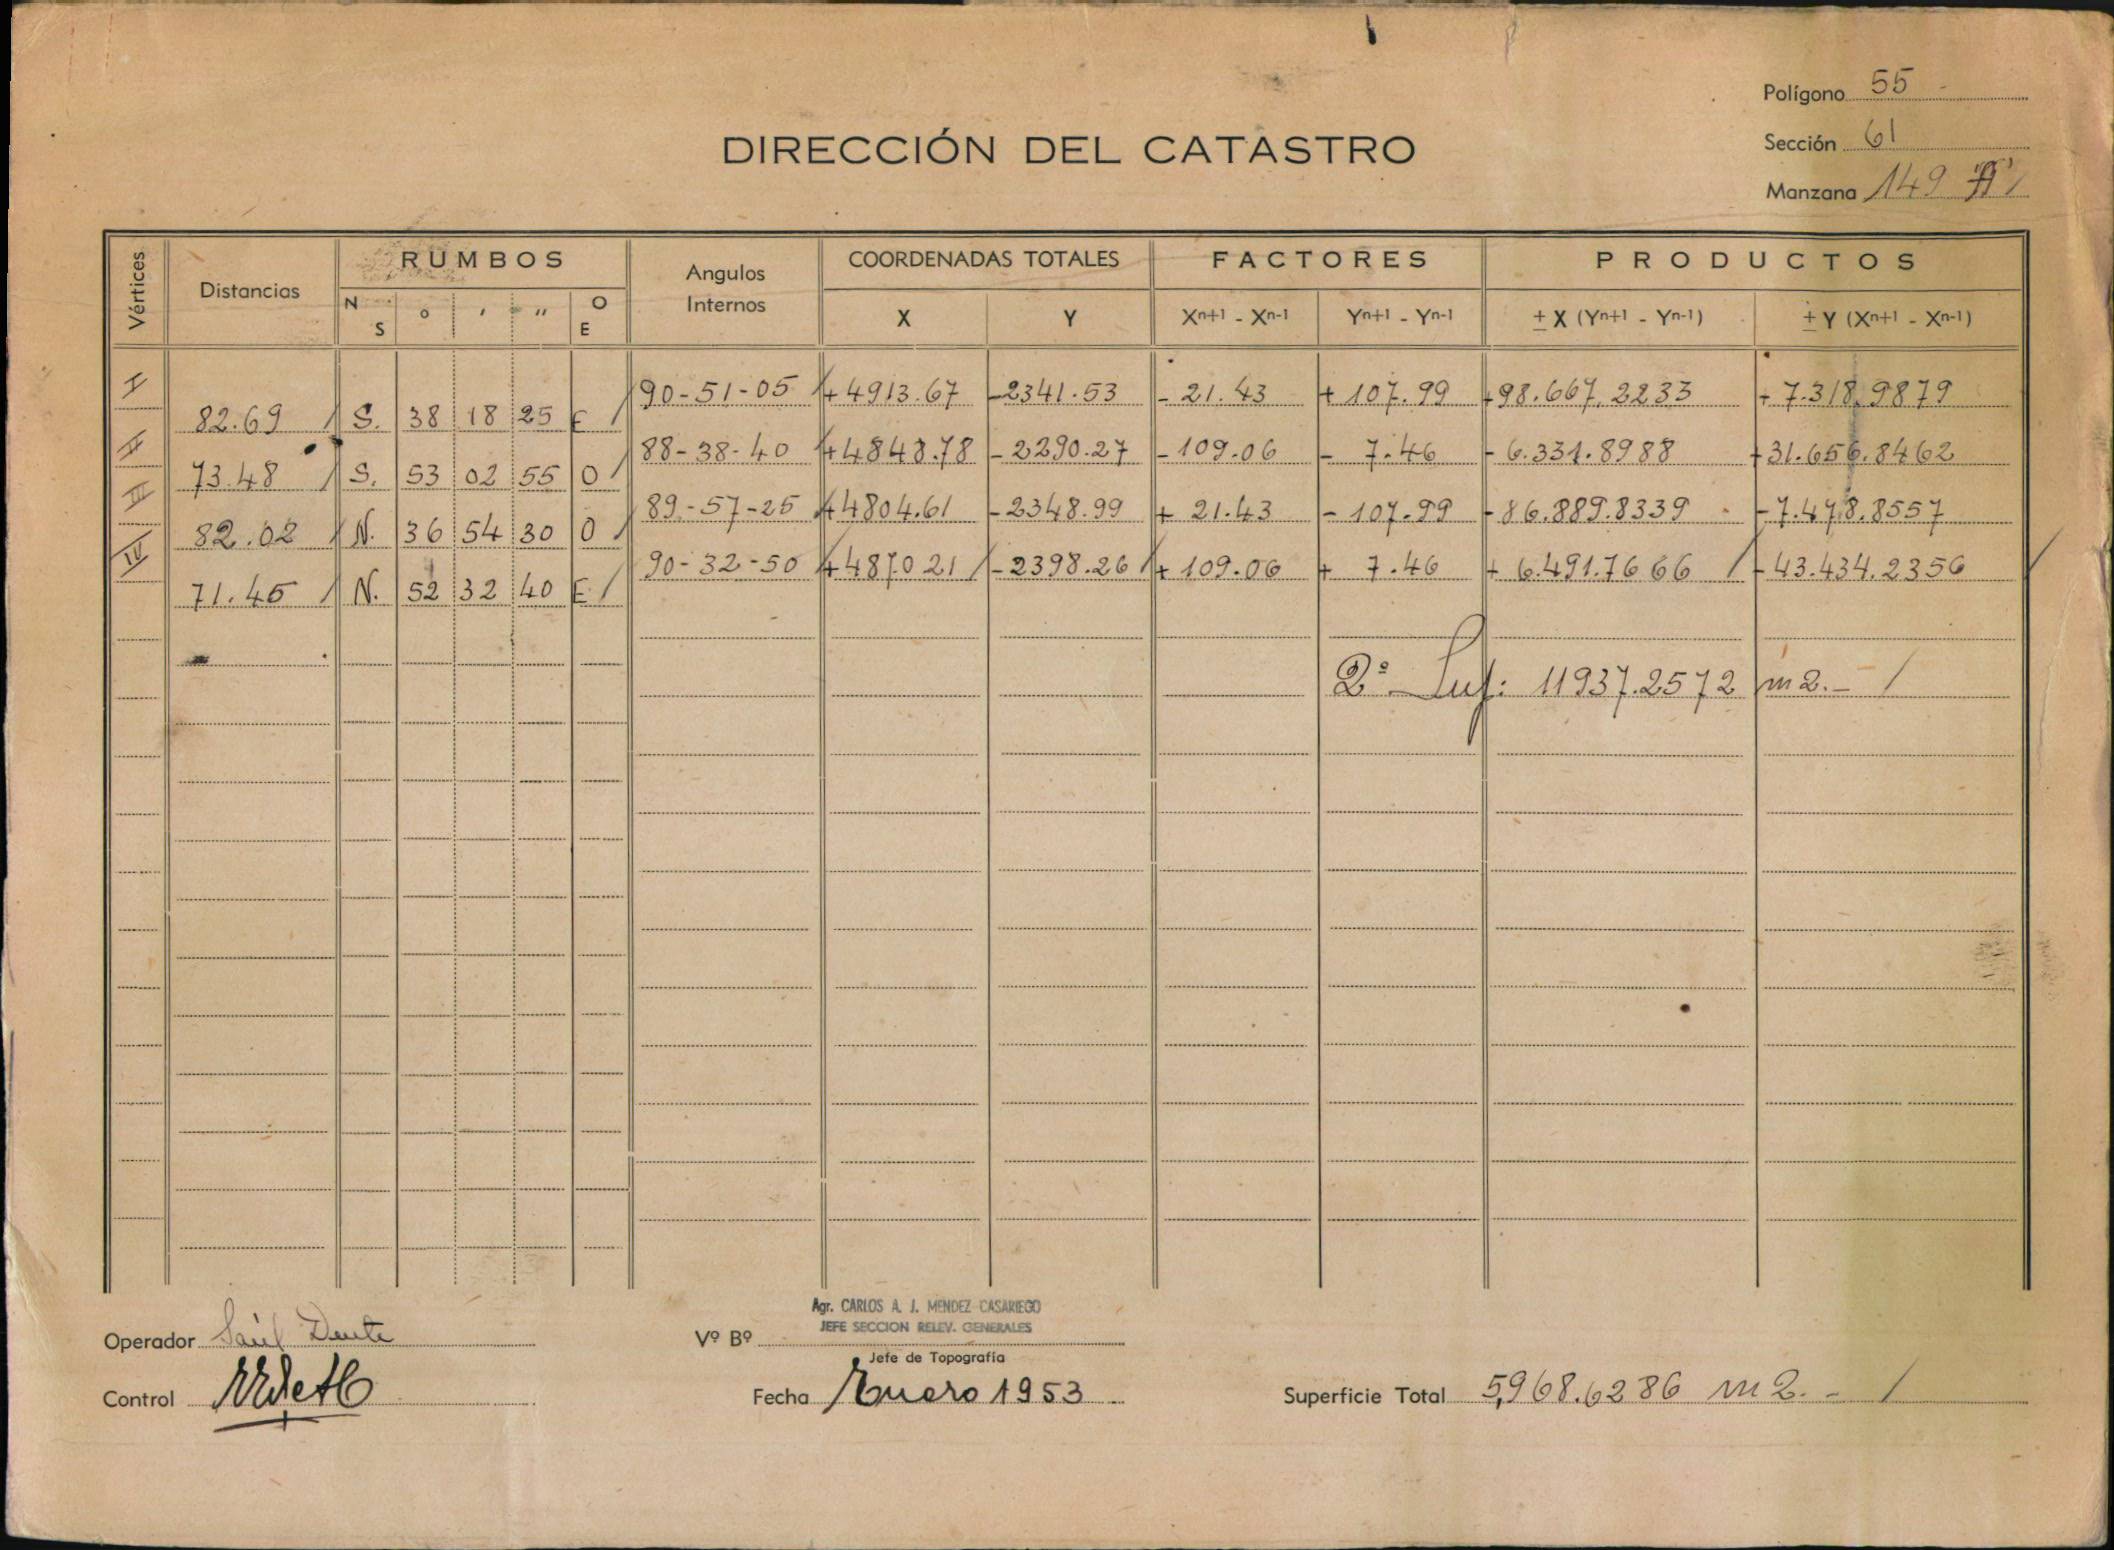 Polígono 55
Sección 61
Manzana 149 "A"
DIRECCIÓN DEL CATASTRO
Vértices Distancias RUMBOS Angulos Internos COORDENADAS TOTALES FACTORES PRODUCTOS
N S ° ' " O E X Y Xn+1 - Xn-1 Yn+1 - Yn-1 ± X (Yn+1 - Yn-1) ± Y (Xn+1 - Xn-1)
I 90-51-05 +4913.67 -2341.53 - 21.43 + 107.99 +98.667.2233 + 7.318.9879
82.69 S. 38 18 25 E
II 88-38-40 +4848.78 -2290.27 -109.06 - 7.46 - 6.331.8988 +31.656.8462
73.48 S. 53 02 55 O
III 89-57-25 +4804.61 -2348.99 + 21.43 - 107.99 -86.889.8339 -7.478.8557
82.02 N. 36 54 30 O
IV 90-32-50 +4870.21 -2398.26 +109.06 + 7.46 + 6.491.7666 -43.434.2356
71.45 N. 52 32 40 E
2ª Sup: 11937.2572 m2.-
Agr. CARLOS A. J. MENDEZ CASARIEGO
JEFE SECCION RELEV. GENERALES
Operador Saúl Dente Vº Bº
Jefe de Topografía
Control Fecha Enero 1953 Superficie Total 5,968.6286 m2.-